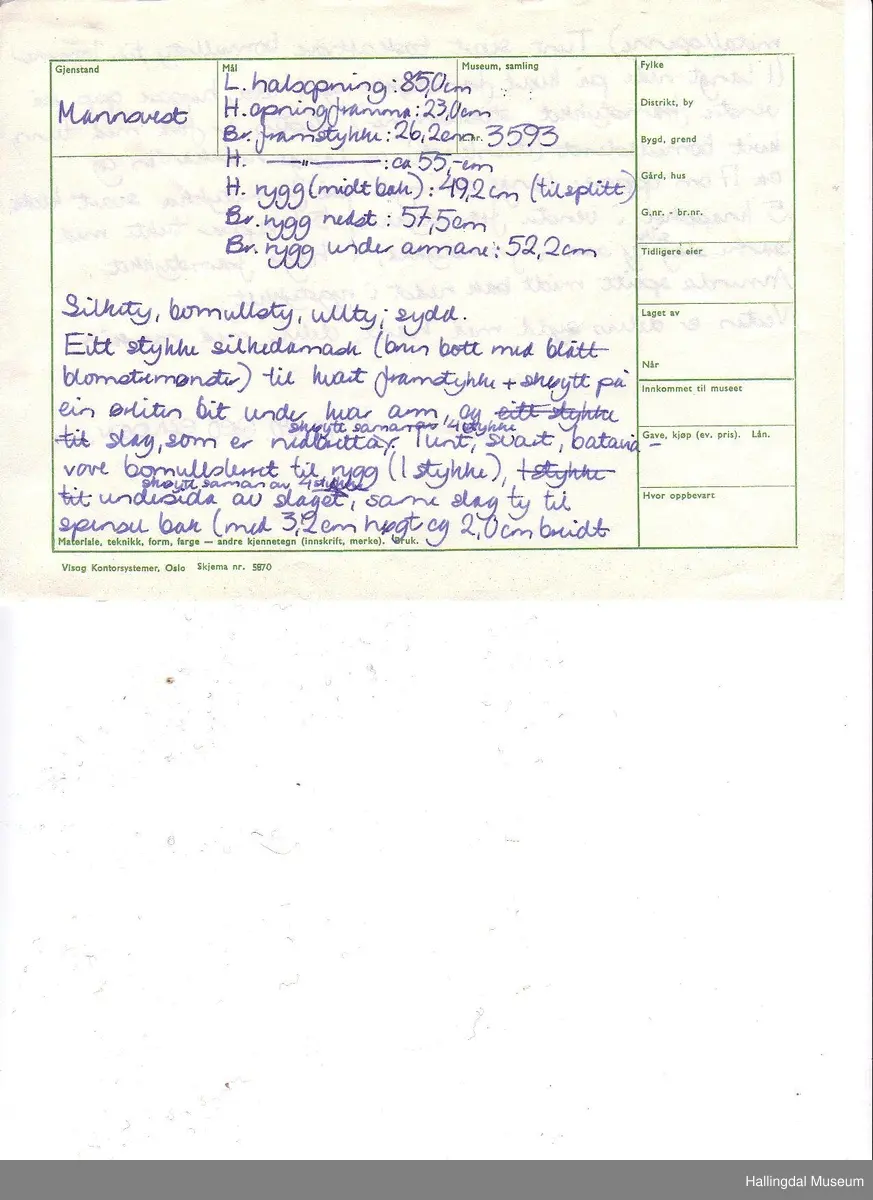 Gjenstand
Mannsvest
Mål
L. halsopning: 85,0cm
H. opning framma: 23,0cm
Br. framstykke: 26,2cm
Museum, samling
nr. 3593
H. —"— : ca 55,- cm
H. rygg (midt bak): 49,2 cm (til splitt)
Br. rygg nedst: 57,5cm
Br. rygg under armane: 52,2cm
Silkety, bomullsty, ullty; sydd.
Eitt stykke silkedamask (brun bott med blått
blomstermønster) til kvart framstykke + skøytt på
ein ørliten bit under kvar arm, og eitt stykke
skøytt saman av 4 stykke
til slag, som er nedbrettar. Tunt, svart, batavia-
vove bomullslerret til rygg (1 stykke), 1 stykke
skøytt saman av 4 stykke
til undersida av slaget, same slag ty til
spensel bak (med 3,2cm høgt og 2,0cm breidt
Materiale, teknikk, form, farge — andre kjennetegn (innskrift, merke). Bruk.
Fylke
Distrikt, by
Bygd, grend
Gård, hus
G.nr. - br.nr.
Tidligere eier
Laget av
Når
Innkommet til museet
Gave, kjøp (ev. pris). Lån.
Hvor oppbevart
Visog Kontorsystemer, Oslo Skjema nr. 5870
Hallingdal Museum